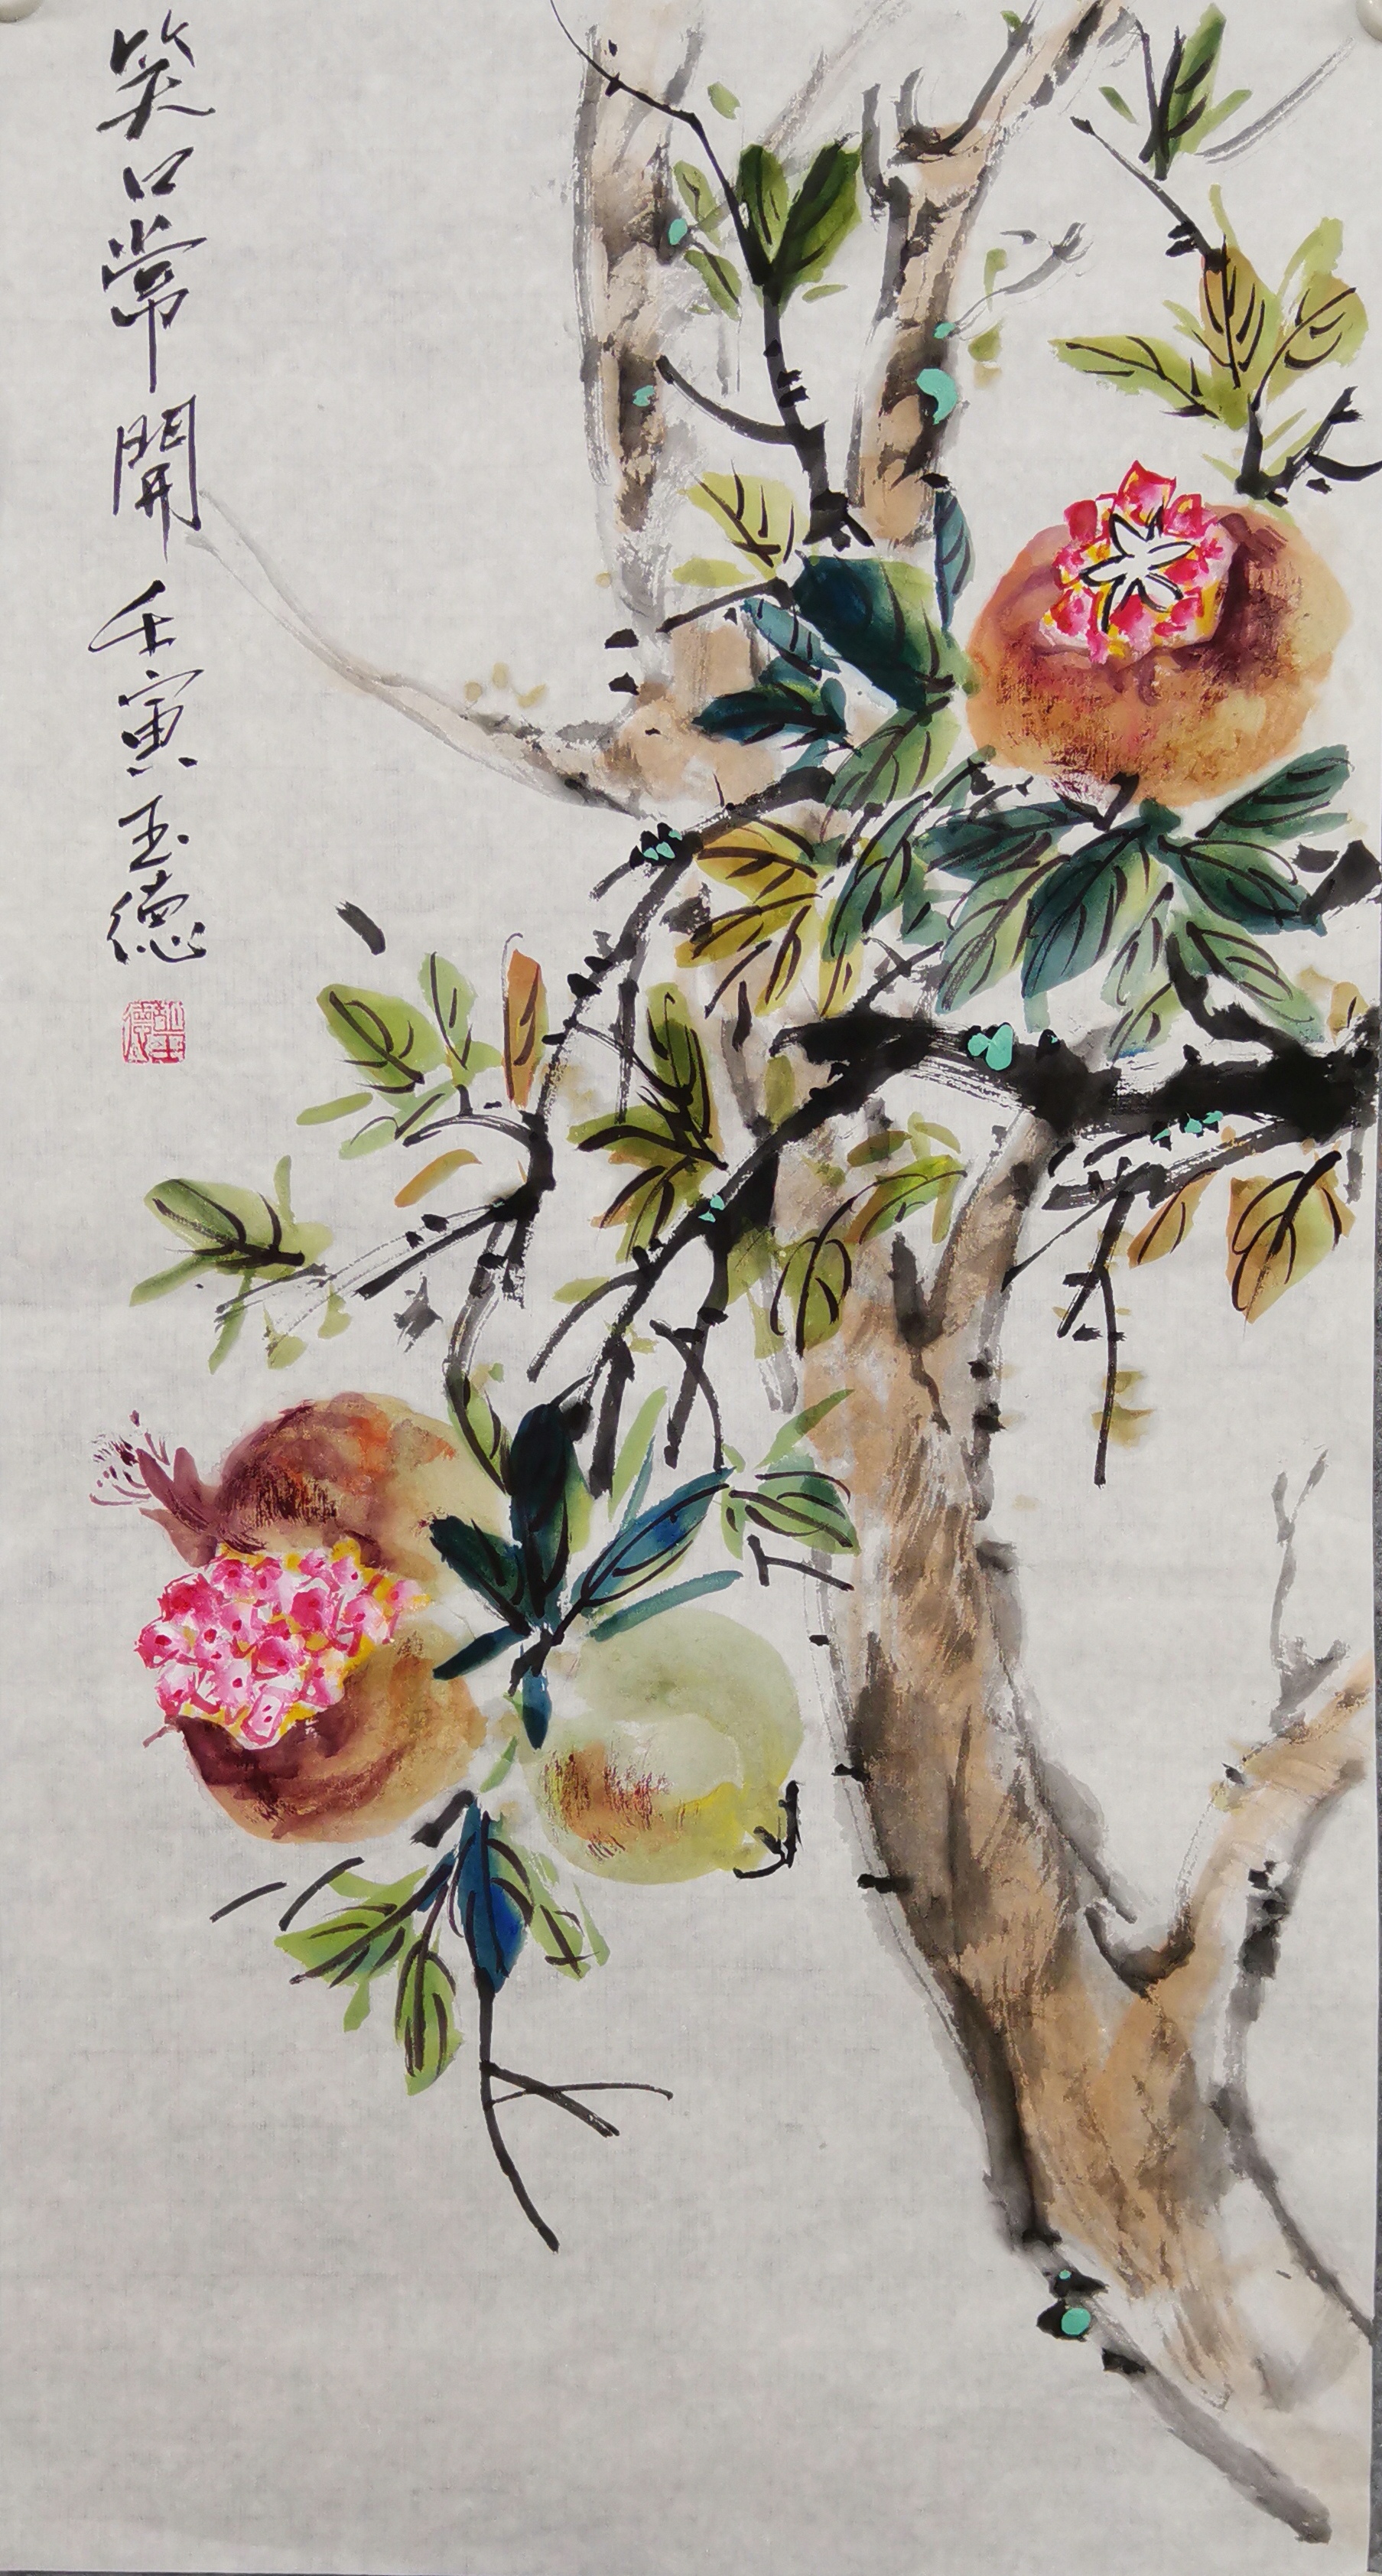 笑口常開壬寅玉德